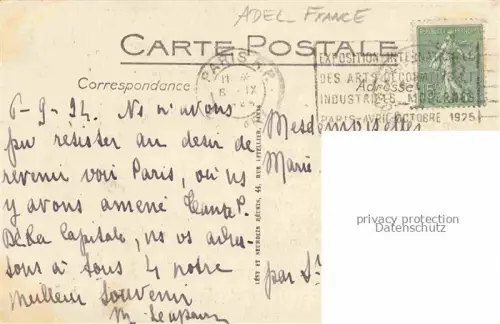 ADEL-FRANCE
CARTE POSTALE
PARIS R.P.
6 -IX
EXPOSITION INTERNATIONALE
DES ARTS DÉCORATIFS ET
INDUSTRIELS MODERNES
PARIS-AVRIL-OCTOBRE 1925
Correspondance
Adresse
6-9-24. Ns n'avons
pu résister au désir de
revenir voir Paris, où ns
y avons amené
De la Capitale, ns vs adres-
sons à tous 4 notre
meilleur souvenir
M.
LÉVY ET NEURDEIN RÉUNIS, 44, RUE LETELLIER, PARIS
Mesdemoiselles
Marie
par St
privacy protection
Datenschutz